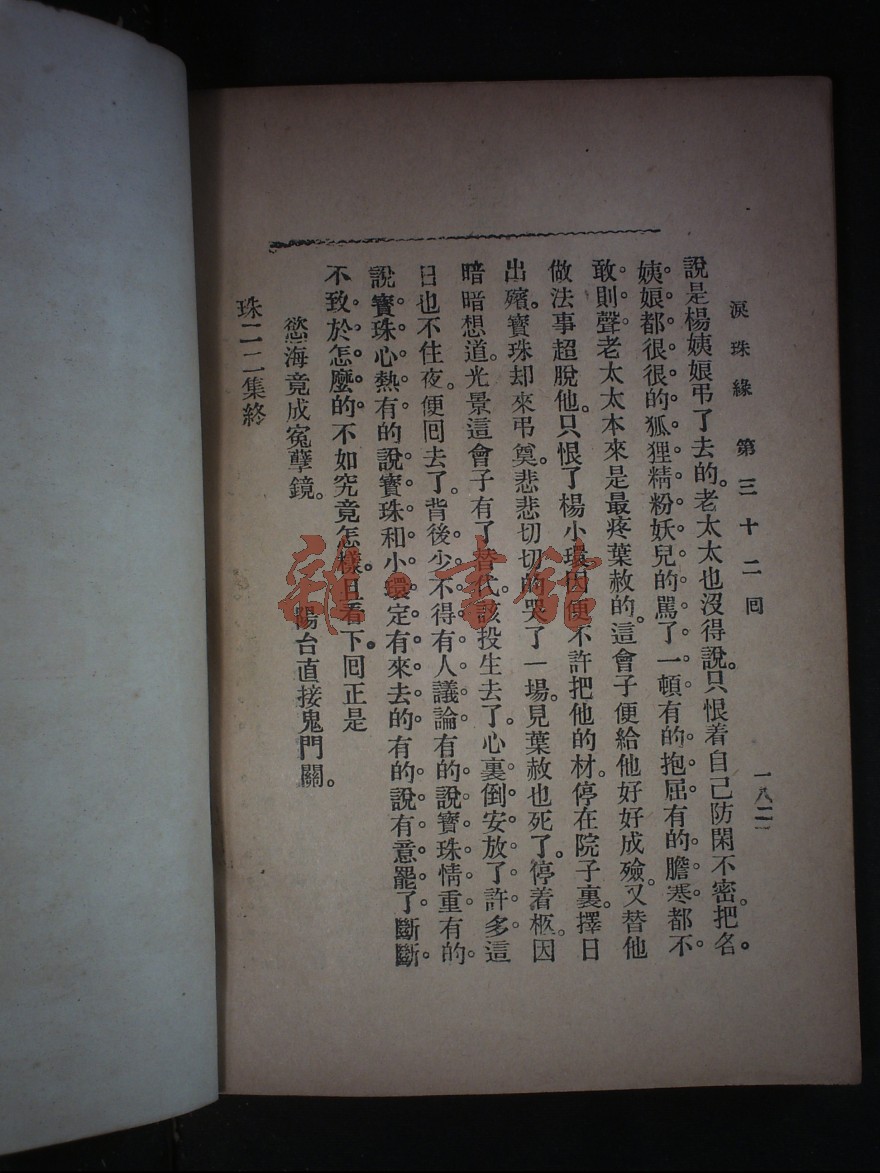 淚珠緣 第三十二回 一八二
說是楊姨娘弔了去的。老太太也沒得說。只恨着自己防閑不密。把名。
姨娘都很很的狐狸精粉妖兒的罵了一頓有的抱屈有的膽寒都不
敢則聲老太太本來是最疼葉赦的。這會子便給他好好成殮。又替他
做法事超脫他。只恨了楊小環因便不許把他的材。停在院子裏。擇日
出殯。寶珠却來弔奠。悲悲切切的哭了一場。見葉赦也死了。停着柩。因
暗暗想道。光景這會子有了替代。該投生去了。心裏倒安放了許多這
日也不住夜。便回去了。背後少不得有人議論有的說寶珠情重有的
說寶珠心熱有的說寶珠和小環定有來去的有的說有意罷了斷斷
不致於怎麼的不如究竟怎樣。且看下回正是
慾海竟成寃孽鏡。 陽台直接鬼門關。
珠二二集終
雜·書館